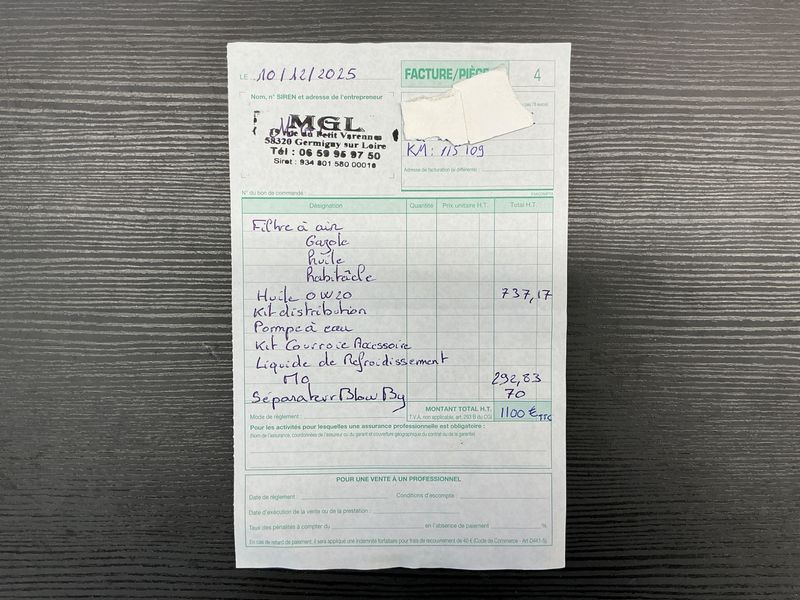 LE 10/12/2025
FACTURE/PIÈCE 4
Nom, n° SIREN et adresse de l'entrepreneur
MGL
rue du Petit Varennes
58320 Germigny sur Loire
Tél : 06 59 95 97 50
Siret : 934 801 580 00018
KM : 115 109
Adresse de facturation (si différente) :
N° du bon de commande :
Désignation Quantité Prix unitaire H.T. Total H.T.
Filtre à air
Gazole
huile
habitâcle
Huile 0W20 737,17
Kit distribution
Pompe à eau
Kit Courroie Accessoire
Liquide de Refroidissement
MO 292,83
Séparateur Blow By 70
MONTANT TOTAL H.T. 1100 € TTC
Mode de règlement : T.V.A. non applicable, art. 293 B du CGI
Pour les activités pour lesquelles une assurance professionnelle est obligatoire :
(Nom de l'assurance, coordonnées de l'assureur ou du garant et couverture géographique du contrat ou de la garantie)
POUR UNE VENTE À UN PROFESSIONNEL
Date de règlement : Conditions d'escompte :
Date d'exécution de la vente ou de la prestation :
Taux des pénalités à compter du en l'absence de paiement %
En cas de retard de paiement, il sera appliqué une indemnité forfaitaire pour frais de recouvrement de 40 € (Code de Commerce - Art D441-5)